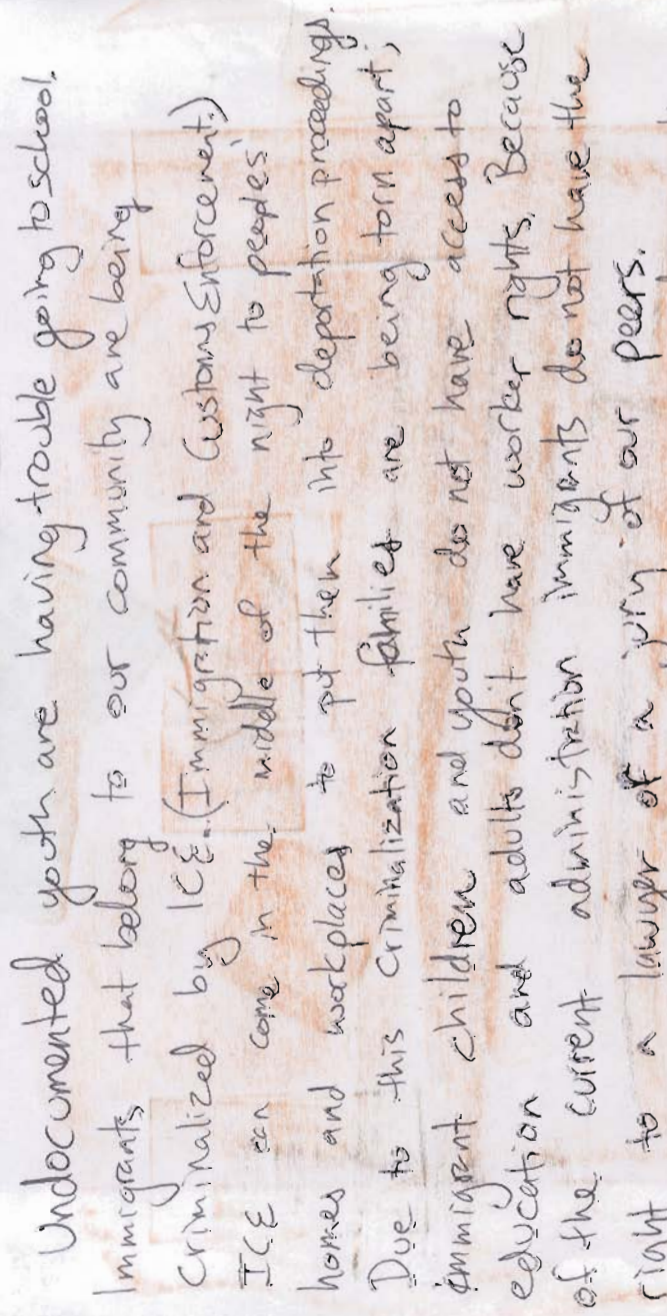 Undocumented youth are having trouble going to school.
Immigrants that belong to our community are being
Criminalized by ICE. (Immigration and Customs Enforcement.)
ICE can come in the middle of the night to peoples'
homes and workplaces to put them into deportation proceedings.
Due to this criminalization families are being torn apart;
immigrant children and youth do not have access to
education and adults don't have worker rights. Because
of the current administration immigrants do not have the
right to a lawyer of a jury of our peers.